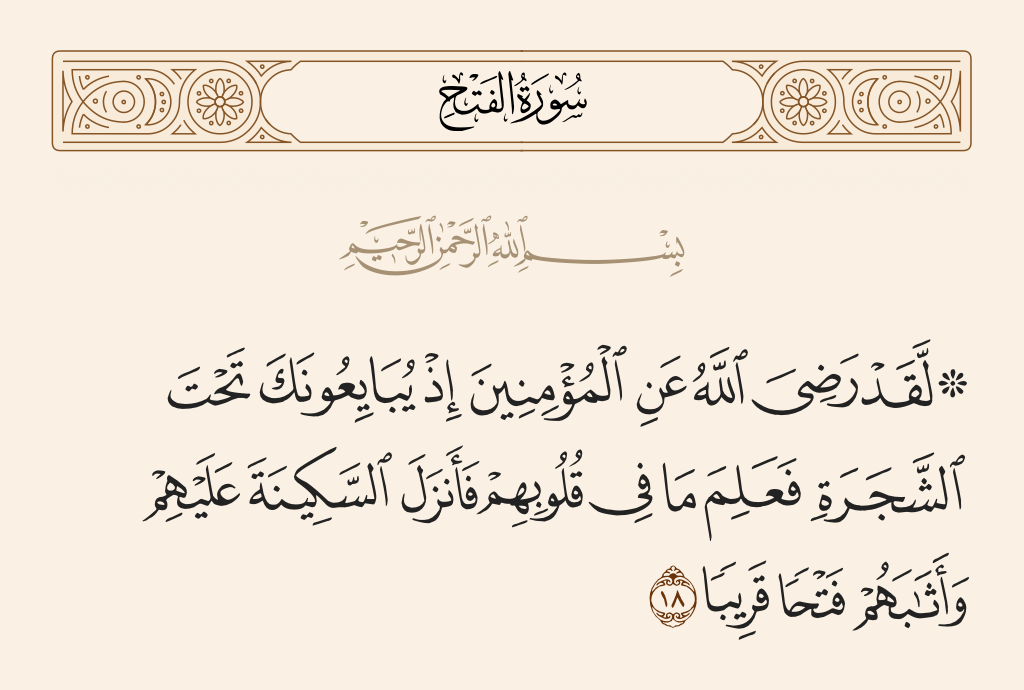 سُورَةُ الفَتۡحِ
بِسۡمِ ٱللَّهِ ٱلرَّحۡمَٰنِ ٱلرَّحِيمِ
۞ لَّقَدۡ رَضِيَ ٱللَّهُ عَنِ ٱلۡمُؤۡمِنِينَ إِذۡ يُبَايِعُونَكَ تَحۡتَ
ٱلشَّجَرَةِ فَعَلِمَ مَا فِي قُلُوبِهِمۡ فَأَنزَلَ ٱلسَّكِينَةَ عَلَيۡهِمۡ
وَأَثَٰبَهُمۡ فَتۡحٗا قَرِيبٗا ١٨